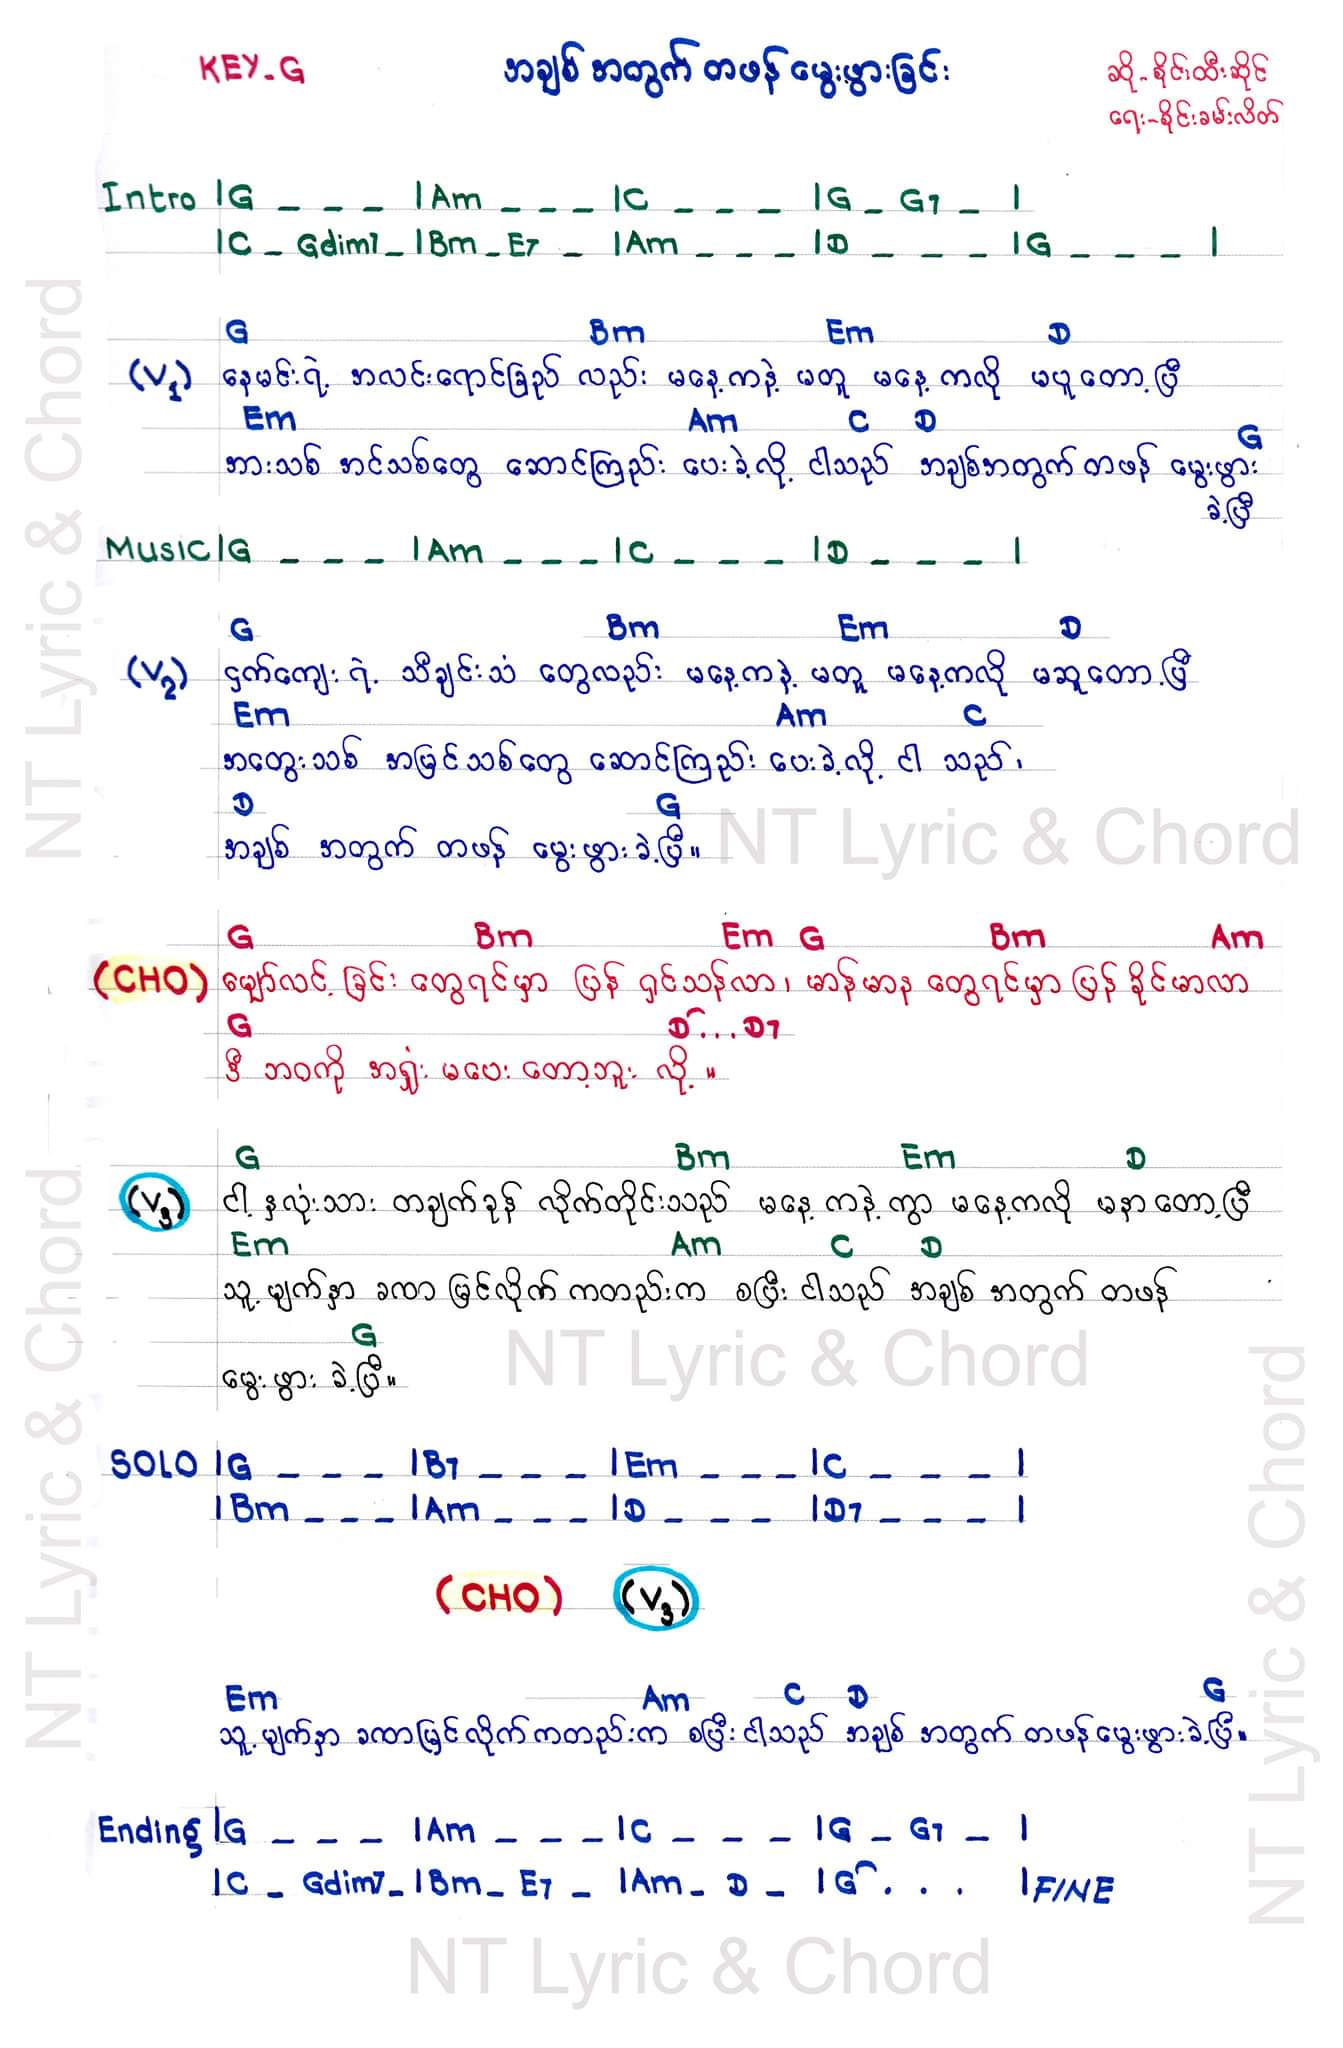 KEY-G
အချစ်အတွက် တဖန် မွေးဖွားခြင်း
ဆို-စိုင်းထီးဆိုင်
ရေး-စိုင်းခမ်းလိတ်
Intro |G _ _ _ |Am _ _ _ |C _ _ _ |G _ G7 _ |
|C _ Gdim7 _ |Bm _ E7 _ |Am _ _ _ |D _ _ _ |G _ _ _ |
G Bm Em D
(V1) နေမင်းရဲ့ အလင်းရောင်ခြည် လည်း မနေ့ကနဲ့ မတူ မနေ့ကလို မပူတော့ပြီ
Em Am C D G
အားသစ် အင်သစ်တွေ ဆောင်ကြည်း ပေးခဲ့လို့ ငါသည် အချစ်အတွက် တဖန် မွေးဖွား
ခဲ့ပြီ
Music |G _ _ _ |Am _ _ _ |C _ _ _ |D _ _ _ |
G Bm Em D
(V2) ငှက်ကျေးရဲ့ သီချင်းသံ တွေလည်း မနေ့ကနဲ့ မတူ မနေ့ကလို မဆူတော့ပြီ
Em Am C
အတွေးသစ် အမြင်သစ်တွေ ဆောင်ကြည်း ပေးခဲ့လို့ ငါ သည်၊
D G
အချစ် အတွက် တဖန် မွေးဖွားခဲ့ပြီ။
G Bm Em G Bm Am
(CHO) မျှော်လင့်ခြင်း တွေရင်မှာ ပြန် ရှင်သန်လာ၊ မာန်မာန တွေရင်မှာ ပြန် ခိုင်မာလာ
G D...D7
ဒီ ဘဝကို အရှုံး မပေး တော့ဘူး လို့။
G Bm Em D
(V3) ငါ့နှလုံးသား တချက်ခုန် လိုက်တိုင်းသည် မနေ့ကနဲ့ ကွာ မနေ့ကလို မနာတော့ပြီ
Em Am C D
သူ့မျက်နှာ ခဏာ မြင်လိုက် ကတည်းက စပြီး ငါသည် အချစ် အတွက် တဖန်
G
မွေးဖွား ခဲ့ပြီ။
SOLO |G _ _ _ |B7 _ _ _ |Em _ _ _ |C _ _ _ |
|Bm _ _ _ |Am _ _ _ |D _ _ _ |D7 _ _ _ |
(CHO) (V3)
Em Am C D G
သူ့မျက်နှာ ခဏာမြင်လိုက်ကတည်းက စပြီးငါသည် အချစ် အတွက် တဖန်မွေးဖွားခဲ့ပြီ။
Ending |G _ _ _ |Am _ _ _ |C _ _ _ |G _ G7 _ |
|C _ Gdim7 _ |Bm _ E7 _ |Am _ D _ |G . . . |FINE
NT Lyric & Chord
NT Lyric & Chord
NT Lyric & Chord
NT Lyric & Chord
NT Lyric & Chord
NT Lyric & Chord